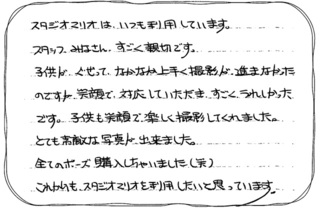 スタジオマリオは、いつも利用しています。
スタッフ、みなさん、すごく親切です。
子供が、ぐずって、なかなか上手く撮影が、進まなかった
のですが、笑顔で、対応していただき、すごく、うれしかった
です。子供も笑顔で、楽しく撮影してくれました。
とても素敵な写真が、出来ました。
全てのポーズ購入しちゃいました(笑)
これからも、スタジオマリオを利用したいと思っています。